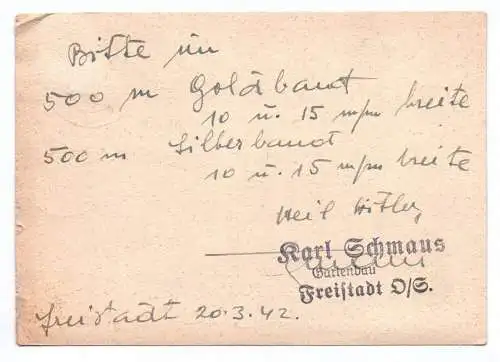 Bitte um
500 m Goldband
10 u. 15 m/m breite
500 m Silberband
10 u. 15 m/m breite
Heil Hitler
Karl Schmaus
Gartenbau
Freistadt O/S.
Freistadt 20.3.42.